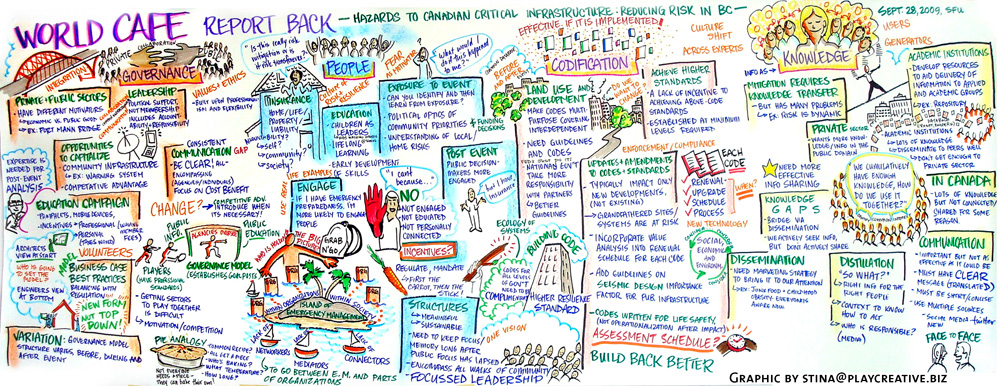 WORLD CAFE REPORT BACK - HAZARDS TO CANADIAN CRITICAL INFRASTRUCTURE: REDUCING RISK IN BC -
SEPT. 28, 2009, SFU
INTEGRATION
PRIVATE
PUBLIC
COLLABORATION
GOVERNANCE
VALUES & ETHICS
PRIVATE & PUBLIC SECTORS
HAVE DIFFERENT MOTIVATORS
ECONOMICS VS PUBLIC GOOD
EX: PORT MANN BRIDGE
LEADERSHIP
POLITICAL SUPPORT,
NOT MEMBERSHIP
INCLUDES ACCOUNT-
ABILITY & RESPONSIBILITY
OPPORTUNITIES
TO CAPITALIZE
COMMUNITY INFRASTRUCTURE
EX: WARNING SYSTEM
COMPETATIVE ADVANTAGE
CONSISTENT
COMMUNICATION GAP
- BE CLEAR!
ALL-
ENCOMPASSING
(AGENCIES/INDIVIDUALS)
FOCUS ON COST BENEFIT
EXPERTISE IS
NEEDED FOR
POST-EVENT
ANALYSIS
EDUCATION CAMPAIGN
PAMPHLETS, MOBILE DEVICES,
CHANGE?
INTRODUCE WHEN
ITS NECESSARY!
PUBLIC INFO
PUBLIC
EDUCATION
ARCHITECTS
VIEW AT START
MODEL
VOLUNTEERS
WHO IS GOING
TO SET THE
ENGINEERS VIEW
AT BOTTOM
BUSINESS CASE
BEST PRACTICES
BALANCING WITH
REGULATION
NEW FORM,
NOT TOP
DOWN!
PLAYERS
GOVERNANCE MODEL
ESTABLISHES GOALPOSTS
- GETTING SECTORS
TO PLAY TOGETHER
IS DIFFICULT
- MOTIVATION/COMPETITION
VARIATION: GOVERNANCE MODEL
STRUCTURE VARIES BEFORE, DURING AND
AFTER EVENT
PIE ANALOGY
COMMON RECIPE?
ALL GET A PIECE
WHO'S BAKING?
WHAT TEMPERATURE?
HOW LONG?
PEOPLE
FEAR
AS MOTIVATOR
INSURANCE
HOME/LIFE/
PROPERTY
LIABILITY
SELF?
COMMUNITY?
SOCIETY?
EDUCATION
CHILDREN AS
LEADERS
LIFELONG
LEARNING
- EARLY DEVELOPMENT
OF SKILLS
EXPOSURE TO EVENT
CAN YOU IDENTIFY AND THEN
LEARN FROM EXPOSURE?
POLITICAL OPTICS OF
COMMUNITY PRIORITIES
UNDERSTANDING OF LOCAL/
HOME RISKS
& FUNDING
DECISIONS
POST EVENT
PUBLIC DECISION-
MAKERS ENGAGED
USE REAL LIFE EXAMPLES
ENGAGE
IF I HAVE EMERGENCY
PREPAREDNESS, I'M
MORE LIKELY TO ENGAGE
PEOPLE
"I can't
because..."
NO
NOT ENGAGED
NOT EDUCATED
NOT PERSONALLY
CONNECTED?
"but I have
insurance"
INCENTIVES?
THE BIG
PICTURE
GRAB
N GO
REGULATE, MANDATE
FIRST THE
CARROT, THEN THE
ISLAND OF
EMERGENCY MANAGEMENT
LACK OF
NETWORKERS
LACK OF
MEDIATORS
LACK OF
CONNECTORS
TO GO BETWEEN E.M. AND PARTS
OF ORGANIZATIONS
STRUCTURES
MEANINGFUL
SUSTAINABLE
- NEED TO KEEP FOCUS/
MEMORY LONG AFTER
PUBLIC FOCUS HAS LAPSED
- ENCOMPASS ALL WALKS OF COMMUNITY
- FOCUSSED LEADERSHIP
ONE VISION
EFFECTIVE, IF IT IS IMPLEMENTED!
CODIFICATION
CULTURE
SHIFT
ACROSS EXPERTS
BEFORE
AFTER
LAND USE AND
DEVELOPMENT
MAKE CODES MULTI
PURPOSE COVERING
INTERDEPENDENT
NEED GUIDELINES
AND CODES
NATIONS CAN
TAKE MORE
RESPONSIBILITY
WITH PARTNERS
BETTER
GUIDELINES
DO WE
WANT TO
CHANGE?
ACHIEVE HIGHER
STANDARDS
A LACK OF INCENTIVE TO
ACHIEVING ABOVE-CODE
STANDARDS
ESTABLISHED AT MINIMUM
LEVELS REQUIRED
ENFORCEMENT/COMPLIANCE
UPDATES & AMENDMENTS
TO CODES & STANDARDS
TYPICALLY IMPACT ONLY
NEW DEVELOPMENTS,
(NOT EXISTING)
GRANDFATHERED SITES/
SYSTEMS ARE AT RISK
INCORPORATE VALUE
ANALYSIS INTO RENEWAL
SCHEDULE FOR EACH CODE
ADD GUIDELINES ON
SEISMIC DESIGN IMPORTANCE
FACTOR FOR PUB INFRASTRUCTURE
CODES WRITTEN FOR LIFE SAFETY
(NOT OPERATIONALIZATION AFTER IMPACT)
ASSESSMENT SCHEDULE?
BUILD BACK BETTER
EACH
CODE
RENEWAL
UPGRADE
SCHEDULE
PROCESS
WHEN?
NEW TECHNOLOGY
SOCIAL,
ECONOMIC
AND
ENVIRONM.
ECOLOGY OF
SYSTEMS
BUILDING CODE
CODES FOR
ALL LEVELS OF
GOV'T NEED TO
COMPLIMENT
HIGHER RESILIENCE
STANDARD
INFO AS
KNOWLEDGE
USERS
GENERATORS
MITIGATION REQUIRES
KNOWLEDGE TRANSFER
- BUT HAS MANY PROBLEMS
- EX: RISK IS DYNAMIC
ACADEMIC INSTITUTIONS
DEVELOP RESOURCES
TO AID DELIVERY OF
INFORMATION TO APPLIED
AND ACADEMIC GROUPS
EX: REPOSITORY
PRIVATE
SECTOR
ACADEMIC INSTITUTIONS
LOTS OF KNOWLEDGE
DISSEMINATE TO PEERS WELL
DON'T GET ENOUGH TO
PRIVATE SECTOR
NEED MORE
EFFECTIVE
INFO SHARING
KNOWLEDGE
GAPS
BRIDGE VIA
DISSEMINATION
WE ACTIVELY SEEK INFO,
BUT DONT ACTIVELY SHARE
WE CUMULATIVELY
HAVE ENOUGH
KNOWLEDGE, HOW
DO WE USE IT
TOGETHER?
IN CANADA
LOTS OF KNOWLEDGE
BUT NOT COLLECTIVELY
SHARED FOR SOME
REASON
DISSEMINATION
NEED MARKETING STRATEGY
TO BRING IT TO OUR ATTENTION!
EX: JUNK FOOD & CHILDHOOD
OBESITY: EVERYBODY'S
AWARE NOW
DISTILLATION
"SO WHAT?"
RIGHT ING FOR THE
RIGHT PEOPLE
CONTEXT TO KNOW
HOW TO ACT
WHO IS RESPONSIBLE?
(MEDIA)
COMMUNICATION
IMPORTANT BUT NOT AS
EFFECTIVE AS IT COULD BE
MUST HAVE CLEAR
MESSAGE (TRANSLATED)
MUST BE SHORT/CONCISE
USE MULTIPLE SOURCES
SOCIAL MEDIA - TWITTER
NEW
FACE TO FACE
GRAPHIC BY STINA@PLAYCREATIVE.BIZ